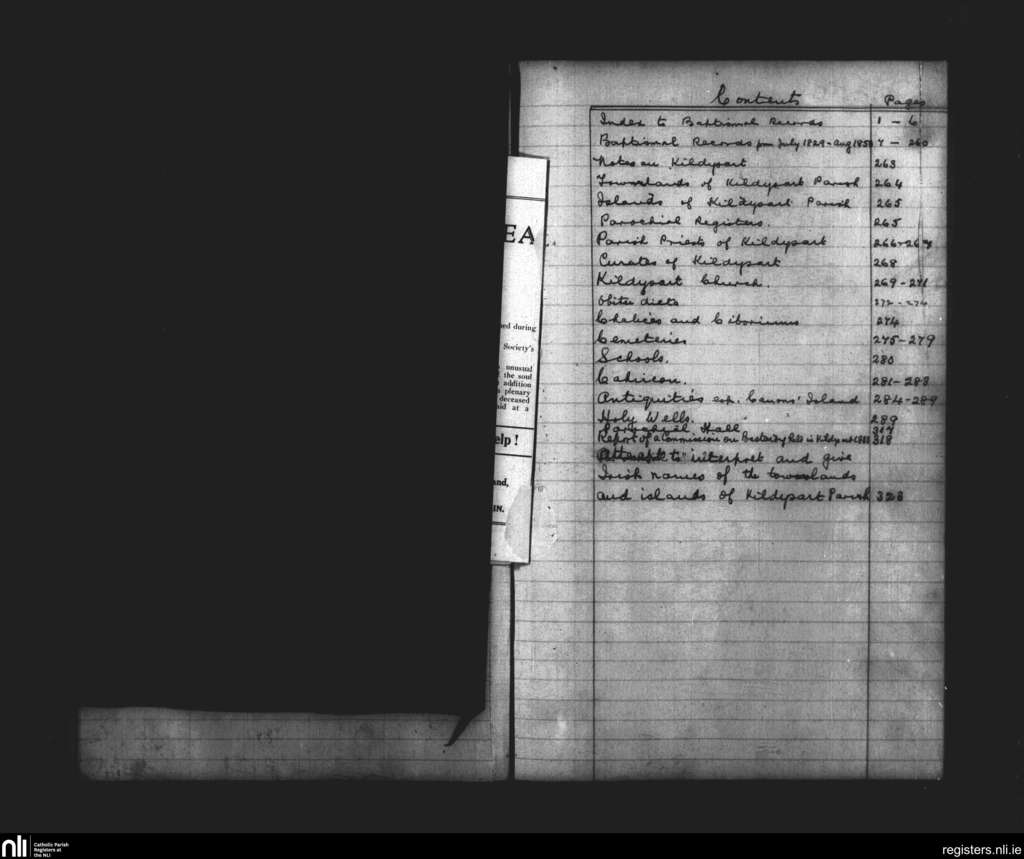 Contents Pages
Index to Baptismal Records 1 - 6
Baptismal Records from July 1829 - Aug 1850 7 - 260
Notes on Kildysart 263
Townlands of Kildysart Parish 264
Islands of Kildysart Parish 265
Parochial Registers. 265
Parish Priests of Kildysart 266-267
Curates of Kildysart 268
Kildysart Church. 269-271
Obiter dicta 272-274
Chalices and Ciboriums 274
Cemeteries 275-279
Schools. 280
Cahircon. 281-283
Antiquities esp. Canons' Island 284-289
Holy Wells. 289
Parochial Hall 317
Report of a Commission on in Kildysart 318
Attempt to interpret and give
Irish names of the townlands
and islands of Kildysart Parish 323
EA
ed during
Society's
unusual
the soul
addition
plenary
deceased
aid at a
elp!
and,
IN.
nli
Catholic Parish
Registers at
the NLI
registers.nli.ie